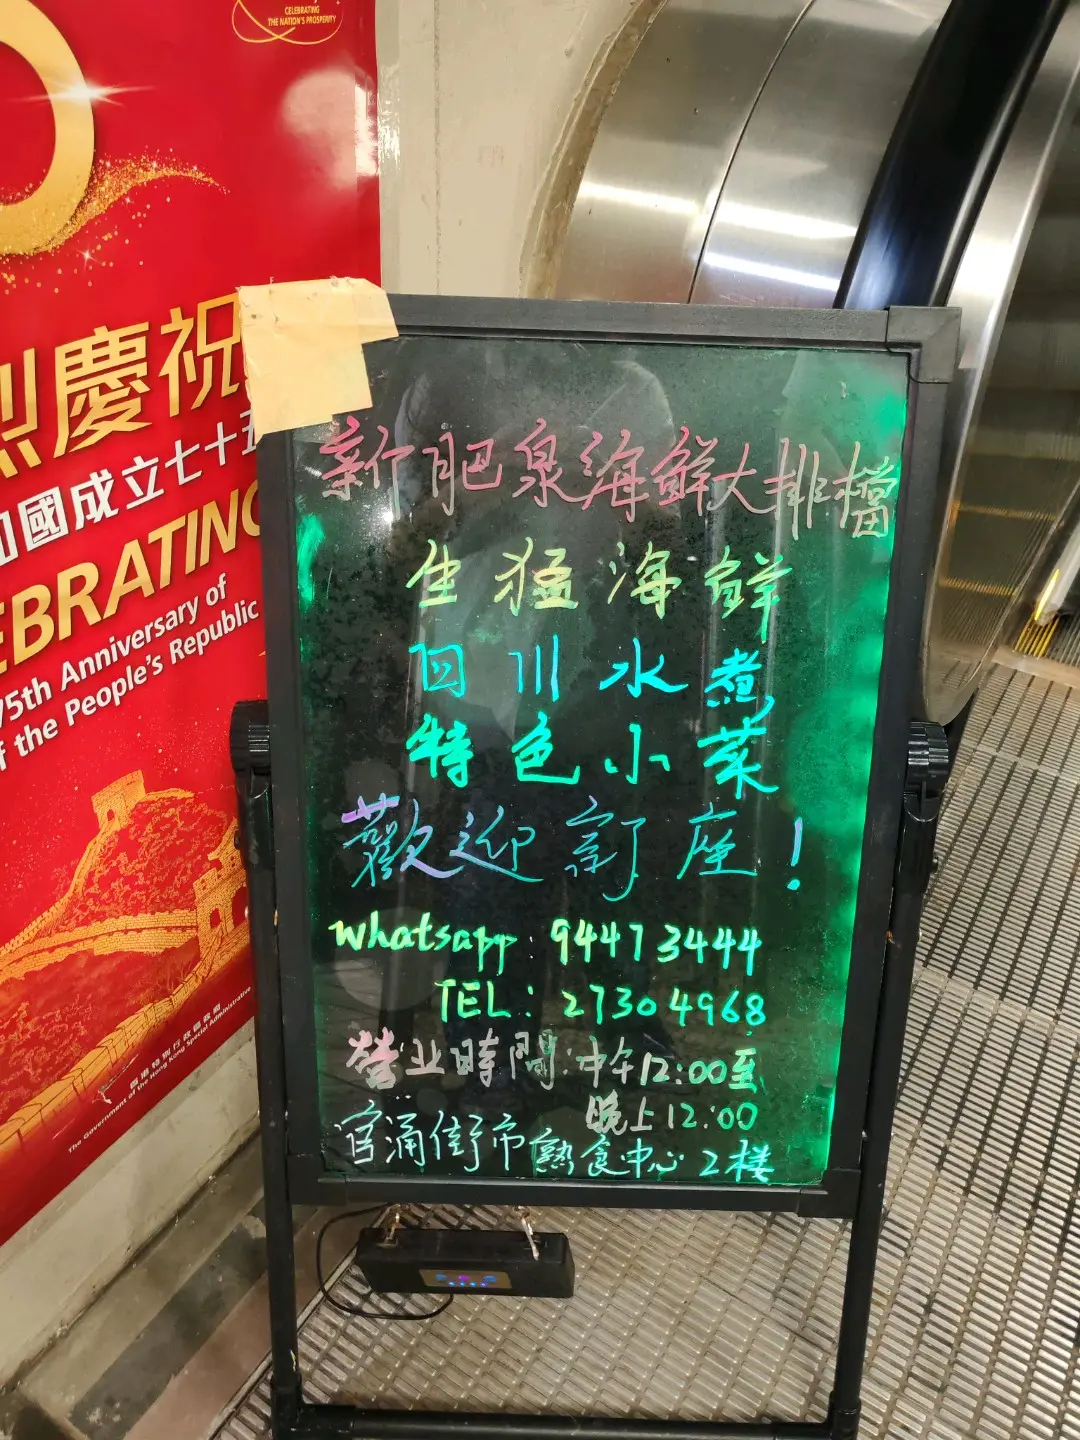 CELEBRATING
THE NATION'S PROSPERITY
烈慶祝
和國成立七十五
EBRATING
75th Anniversary of
of the People's Republic
香港特別行政區政府
The Government of the Hong Kong Special Administrative
新肥泉海鮮大排檔
生猛海鮮
四川水煮
特色小菜
歡迎訂座！
Whatsapp: 94473444
TEL: 27304968
營业時間:中午12:00至
晚上12:00
官涌街市熟食中心2楼